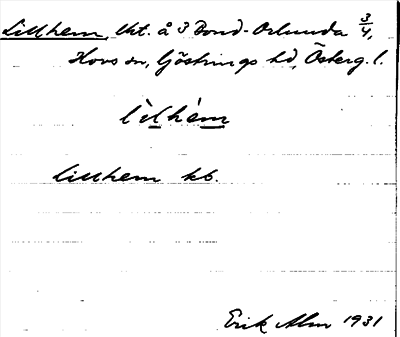 Lillhem, lht. å 3 Bond-Orlunda 3/4,
Hovs sn, Göstrings hd, Österg. l.
lìlhèm
Lillhem kb.
Erik Alm 1931